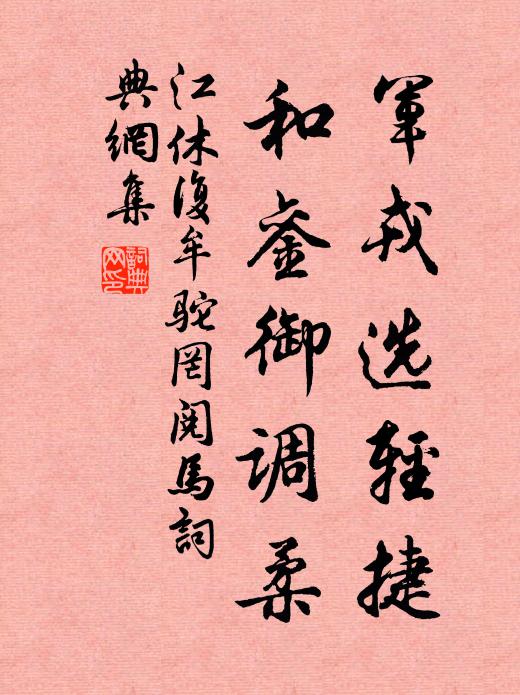 軍戎选輕捷
和銮御调柔
江休復牟駝罔阅馬詞
典網集
詞典网印